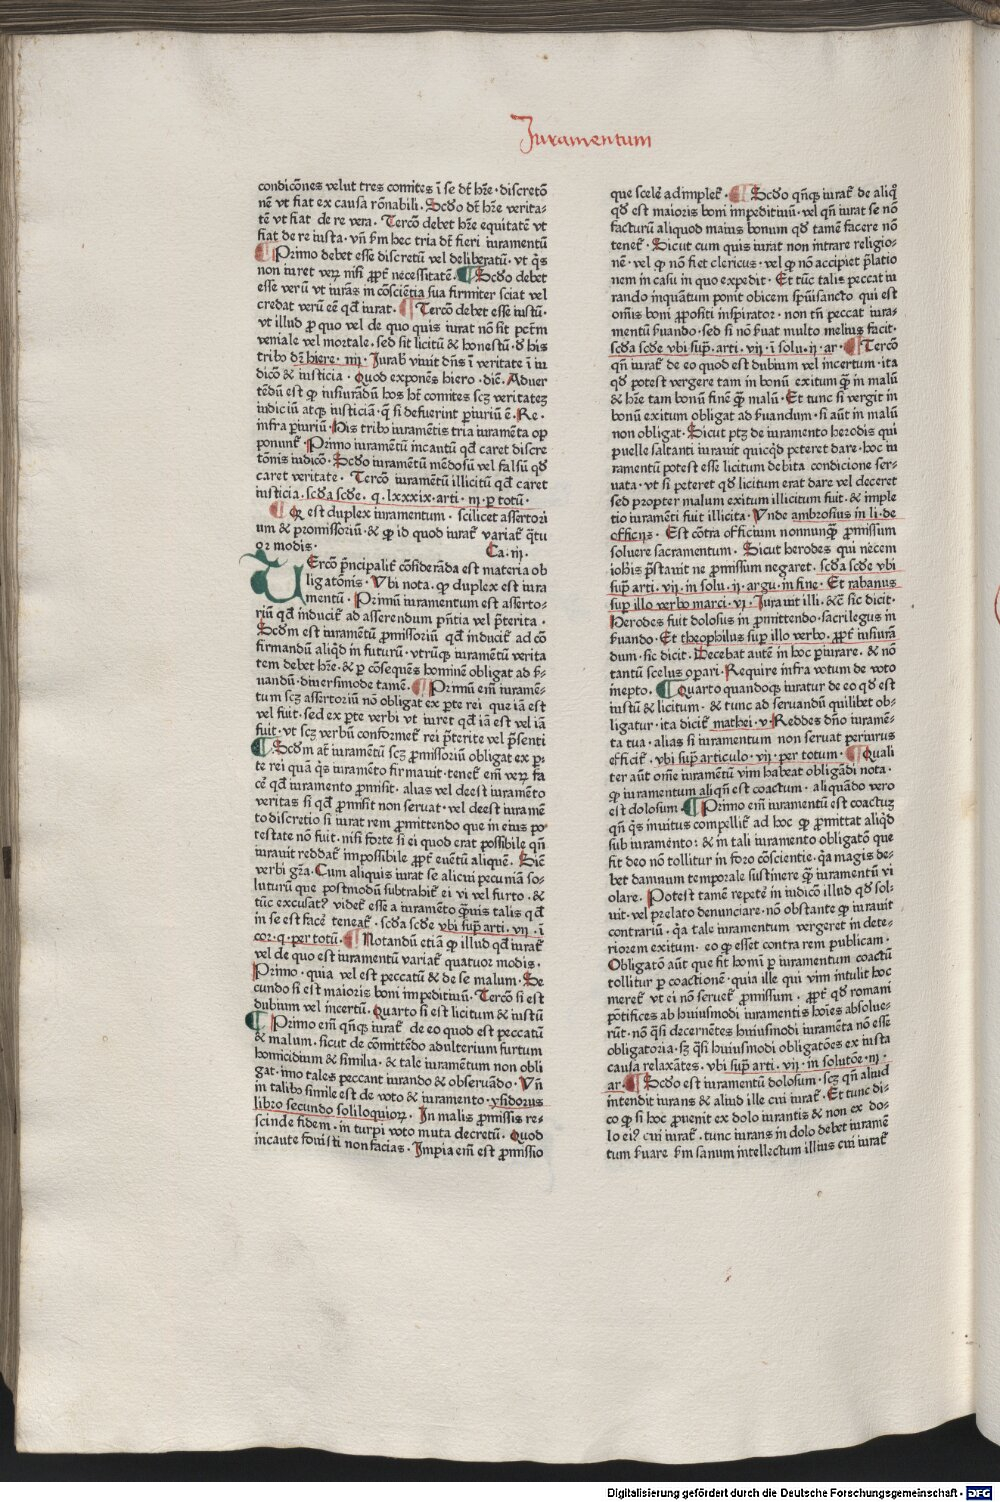 Iuramentum
condicōnes velut tres comites ī se dꝫ hr̄e · discretō
nē vt fiat ex causa rōnabili · Scd̄o dꝫ hr̄e verita-
tē vt fiat de re vera · Tercō debet hr̄e equitatē vt
fiat de re iusta · vn̄ ẜm hec tria dꝫ fieri iuramentū
¶ Primo debet esse discretū vel deliberatū · vt q̄s
non iuret verꝫ nisi ꝓpt̄ necessitatē · ¶ Scd̄o debet
esse verū vt iurās in cōsciētia sua firmiter sciat vel
credat verū eē qd̄ iurat · ¶ Tercō debet esse iustū ·
vt illud ꝑ quo vel de quo quis iurat nō sit pctm̄
veniale vel mortale · sed sit licitū & honestū · d̄ his
tribꝰ dꝫ hiere · iiii · Jurab̄ viuit dn̄s ī veritate ī iu
dicō & iusticia · Quod exponēs hiero · diē · Aduer
tēdū est ꝙ iusiurādū hos hꝫ comites scꝫ veritatez
iudiciū atqꝫ iusticiā · q̄ si defuerint ꝑiuriū ē · Re ·
infra ꝑiuriū · His tribꝰ iuramētis tria iuramēta op
ponunt̄ · Primo iuramētū incautū qd̄ caret discre
tōnis iudicō · Scd̄o iuramētū mēdosū vel falsū qd̄
caret veritate · Tercō iuramētū illicitū qd̄ caret
iusticia · scd̄a scd̄e · q · lxxxix · arti · iii · ꝑ totū ·
¶ Qꝛ est duplex iuramentum · scilicet assertori
um & promissoriū · & ꝙ id quod iurat̄ variat̄ q̄tu
or modis · Ca · iii ·
TErcō p̄ncipalit̄ cōsiderāda est materia ob
ligatōnis · Vbi nota · ꝙ duplex est iura
mentū · Primū iuramentum est asserto-
riū qd̄ inducit̄ ad asserendum p̄ntia vel p̄terita ·
Scd̄m est iuramētū ꝓmissoriū qd̄ inducit̄ ad cō
firmandū aliqd̄ in futurū · vtrūqꝫ iuramētū verita
tem debet hr̄e · & ꝑ cōsequēs hominē obligat ad ẜ-
uandū · diuersimode tamē · ¶ Primū em̄ iuramē-
tum scꝫ assertoriū nō obligat ex ꝑte rei que iā est
vel fuit · sed ex ꝑte verbi vt iuret qd̄ iā est vel iā
fuit · vt scꝫ verbū conformet̄ rei p̄terite vel p̄senti
¶ Scd̄m at̄ iuramētū scꝫ ꝓmissoriū obligat ex ꝑ-
te rei quā q̄s iuramēto firmauit · tenet̄ em̄ verꝫ fa
cē qd̄ iuramento ꝓmisit · alias vel deest iuramēto
veritas si qd̄ ꝓmisit non seruat · vel deest iuramē
to discretio si iurat rem ꝓmittendo que in eius po-
testate nō fuit · nisi forte si ei quod erat possibile qn̄
iurauit reddat̄ impossibile ꝓpt̄ euētū aliquē · Siē
verbi gr̄a · Cum aliquis iurat se alicui pecuniā so-
luturū que postmodū subtrahit̄ ei vi vel furto · &
tūc excusat? videt̄ esse a iuramēto q̄uis talis qd̄
in se est facē teneat̄ · scd̄a scd̄e vbi sup̄ arti · vii · ī
cor · q · per totū · ¶ Notandū etiā ꝙ illud qd̄ iurat̄
vel de quo est iuramentū variat̄ quatuor modis ·
Primo · quia vel est peccatū & de se malum · Se
cundo si est maioris boni impeditiuū · Tercō si est
dubium vel incertū · Quarto si est licitum & iustū
¶ Primo em̄ qn̄qꝫ iurat̄ de eo quod est peccatū
& malum · sicut de cōmittēdo adulterium furtum
homicidium & similia · & tale iuramētum non obli
gat · imo tales peccant iurando & obseruādo · Vn̄
in talibꝰ simile est de voto & iuramento · ysidorus
libro secundo soliloquiorꝫ · In malis ꝓmissis re-
scinde fidem · in turpi voto muta decretū · Quod
incaute fouisti non facias · Impia em̄ est ꝓmissio
que scelē adimplet̄ · ¶ Scd̄o qn̄qꝫ iurat̄ de aliqͦ
qd̄ est maioris boni impeditiuū · vel qn̄ iurat se nō
facturū aliquod maius bonum qd̄ tamē facere nō
tenet̄ · Sicut cum quis iurat non intrare religio-
nē · vel ꝙ nō fiet clericus · vel ꝙ nō accipiet p̄latio
nem in casu in quo expedit · Et tūc talis peccat iu
rando inquātum ponit obicem sp̄uisancto qui est
om̄is boni ꝓpositi inspirator · non tn̄ peccat iura-
mentū ẜuando · sed si nō ẜuat multo melius facit ·
scd̄a scd̄e vbi sup̄ · arti · vii · ī solu · ii · ar · ¶ Tercō
qn̄ iurat̄ de eo quod est dubium vel incertum · ita
qd̄ potest vergere tam in bonū exitum q̄ in malū
& hr̄e tam bonū finē q̄ malū · Et tunc si vergit in
bonū exitum obligat ad ẜuandum · si aūt in malū
non obligat · Sicut ptꝫ de iuramento herodis qui
puelle saltanti iurauit quicqd̄ peteret dare · hoc iu
ramentū potest esse licitum debita condicione ser-
uata · vt si peteret qd̄ licitum erat dare vel deceret
sed propter malum exitum illicitum fuit · & imple
tio iuramēti fuit illicita · Vnde ambrosius in li · de
officijs · Est cōtra officium nonnunq̄ ꝓmissum
soluere sacramentum · Sicut herodes qui necem
ioh̄is p̄stauit ne ꝓmissum negaret · scd̄a scd̄e vbi
sup̄ arti · vii · in solu · ii · argu · in fine · Et rabanus
sup̄ illo verbo marci · vi · Jurauit illi · &c̄ sic dicit ·
Herodes fuit dolosus in ꝓmittendo · sacrilegus in
ẜuando · Et theophilus sup̄ illo verbo · ꝓpt̄ iusiurā
dum · sic dicit · Decebat autē in hoc ꝑiurare · & nō
tantū scelus oꝑari · Require infra votum de voto
inepto · ¶ Quarto quandoqꝫ iuratur de eo qd̄ est
iustū & licitum · & tunc ad seruandū quilibet ob-
ligatur · ita dicit̄ mathei · v · Reddes dn̄o iuramē-
ta tua · alias si iuramentum non seruat periurus
efficit̄ · vbi sup̄ articulo · vii · per totum · ¶ Quali
ter aūt om̄e iuramētū vim habeat obligādi nota ·
ꝙ iuramentum aliqn̄ est coactum · aliquādo vero
est dolosum · ¶ Primo em̄ iuramentū est coactuꝫ
qn̄ q̄s inuitus compellit̄ ad hoc ꝙ ꝓmittat aliqd̄
sub iuramento: & in tali iuramento obligatō que
fit deo nō tollitur in foro cōscientie · q̄a magis de-
bet damnum temporale sustinere q̄ iuramentū vi
olare · Potest tamē repetē in iudicō illud qd̄ sol-
uit · vel prelato denunciare · nō obstante ꝙ iurauit
contrariū · q̄a tale iuramentum vergeret in dete-
riorem exitum · eo ꝙ esset contra rem publicam ·
Obligatō aūt que fit hoīmi ꝑ iuramentum coactū
tollitur ꝑ coactionē · quia ille qui vim intulit hoc
meret̄ vt ei nō seruet̄ ꝓmissum · ꝓpt̄ qd̄ romani
pōtifices ab huiusmodi iuramentis hoīes absolue-
rūt · nō q̄si decernētes huiusmodi iuramēta nō esse
obligatoria · sꝫ q̄si huiusmodi obligatōes ex iusta
causa relaxātes · vbi sup̄ arti · vii · in solutōe · iii ·
ar · ¶ Scd̄o est iuramentū dolosum · scꝫ qn̄ aliud
intendit iurans & aliud ille cui iurat̄ · Et tunc di-
co ꝙ si hoc ꝓuenit ex dolo iurantis & non ex do-
lo ei? cui iurat̄ · tunc iurans in dolo debet iuramē
tum ẜuare ẜm sanum intellectum illius cui iurat̄
Digitalisierung gefördert durch die Deutsche Forschungsgemeinschaft - DFG